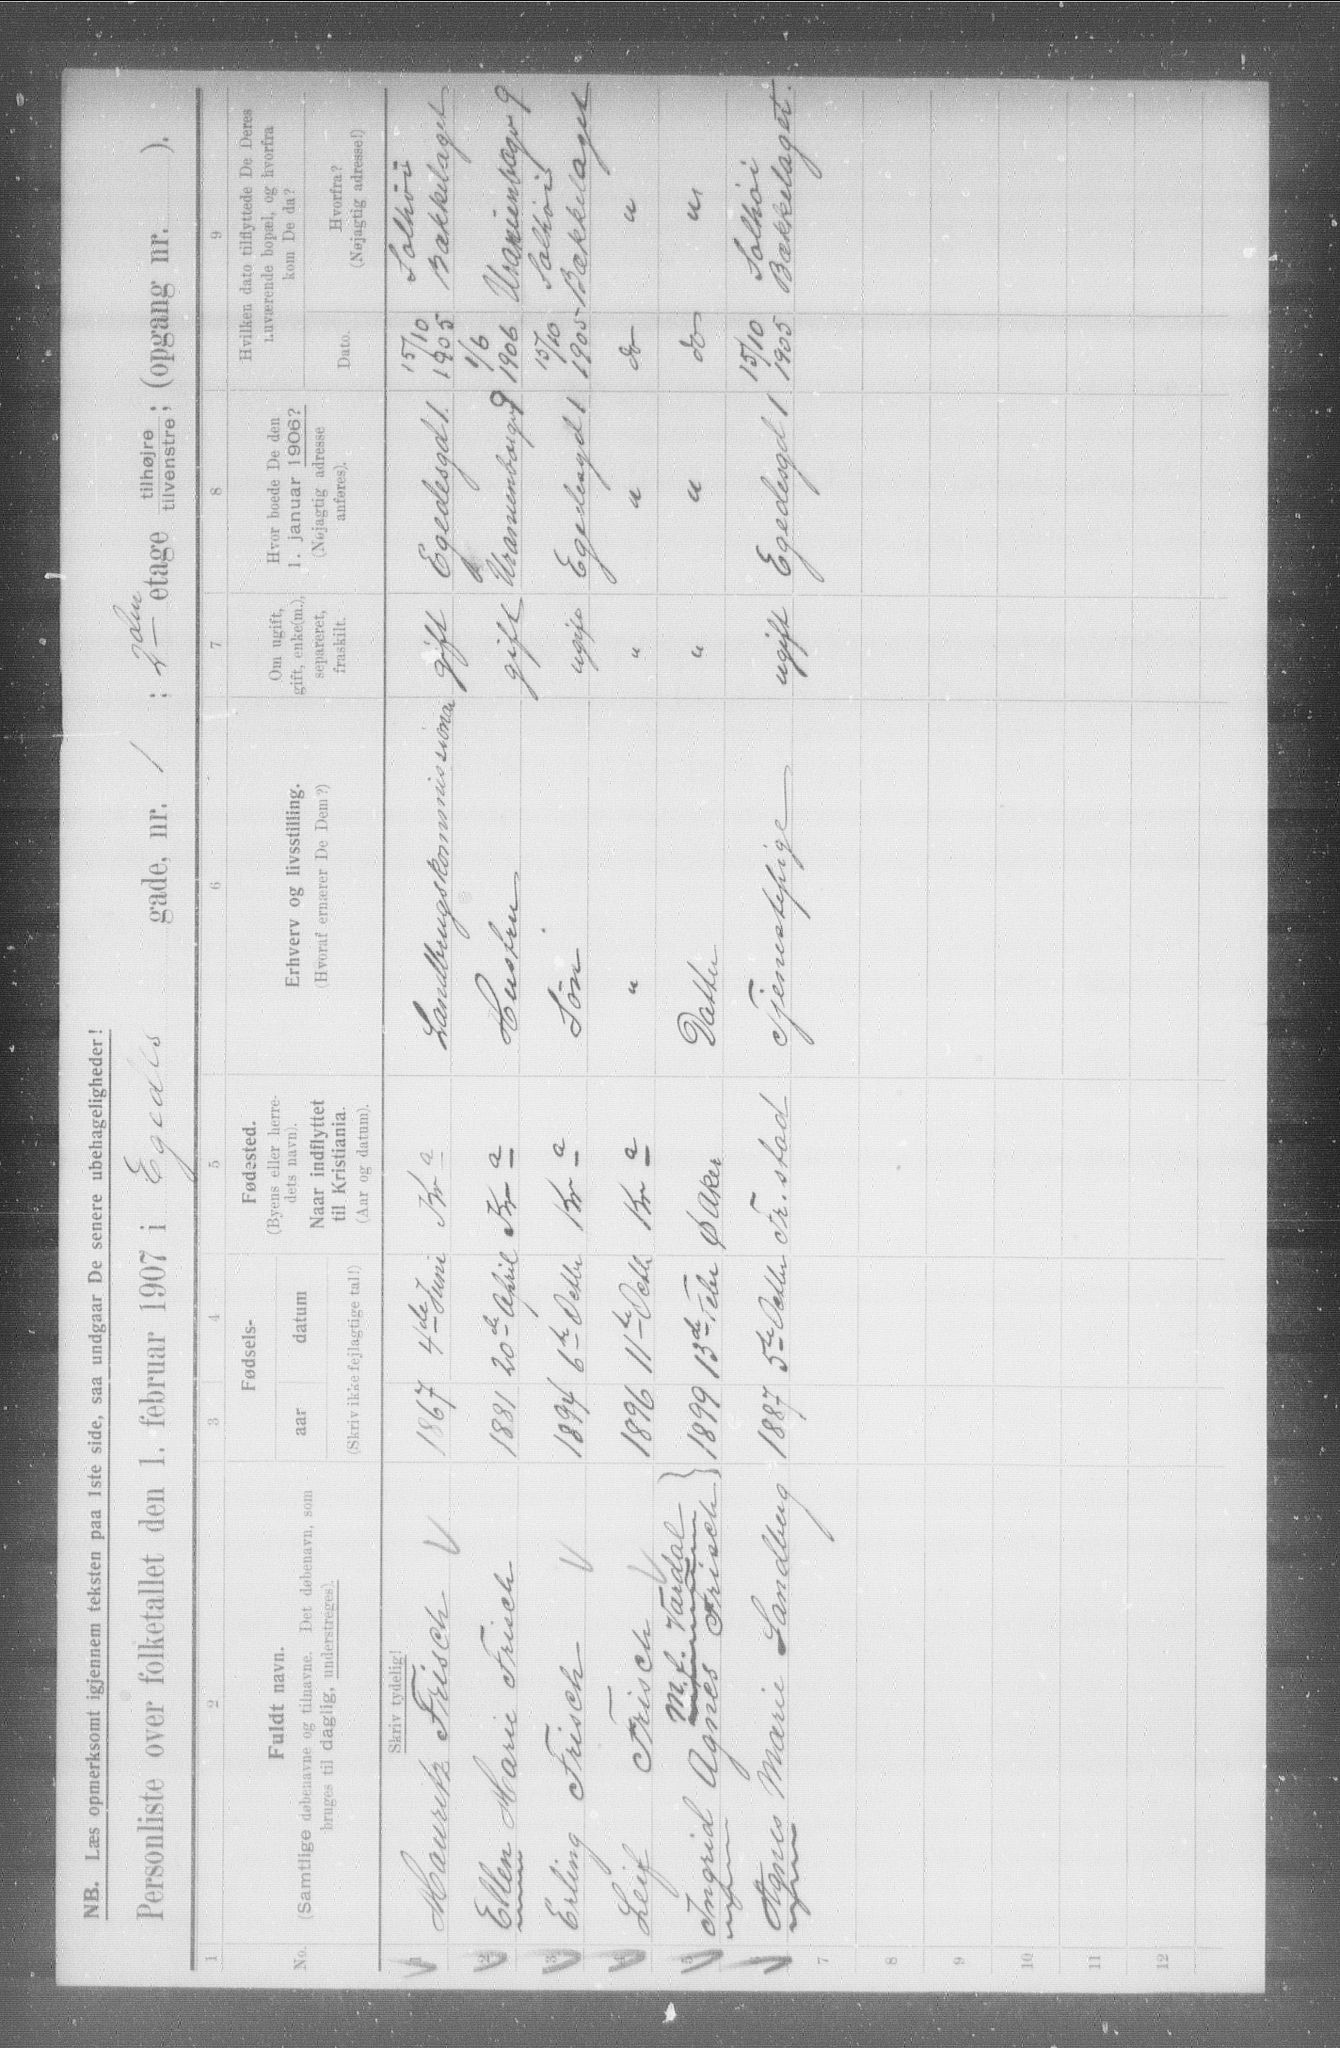 NB. Læs opmerksomt igjennem teksten paa 1ste side, saa undgaar De senere ubehageligheder!
Personliste over folketallet den 1. februar 1907 i Egedes gade, nr. 1 ; 2den etage tilhøjre tilvenstre; (opgang nr. ).
1 2 3 4 5 6 7 8 9
No.
Fuldt navn.
(Samtlige døbenavne og tilnavne. Det døbenavn, som
bruges til daglig, understreges).
Fødsels-
aar datum
(Skriv ikke fejlagtige tal!)
Fødested.
(Byens eller herre-
dets navn).
Naar indflyttet
til Kristiania.
(Aar og datum).
Erhverv og livsstilling.
(Hvoraf ernærer De Dem?)
Om ugift,
gift, enke(m.),
separeret,
fraskilt.
Hvor boede De den
1. januar 1906?
(Nøjagtig adresse
anføres).
Hvilken dato tilflyttede De Deres
nuværende bopæl, og hvorfra
kom De da?
Dato.
Hvorfra?
(Nøjagtig adresse!)
Skriv tydelig!
1 Mauritz Frisch 1867 4de Juni Kr a Landbrugskommissionær gift Egedesgd 1. 15/10 1905 Solhöi Bækkelaget
2 Ellen Marie Frisch 1881 20de April Kr a Hustru gift Uranienborgv 9 1/6 1906 Uranienborgv 9
3 Erling Frisch 1894 6te Octbr Kr a Sön ugift Egedesgd 1 15/10 1905 Solhöi Bækkelaget
4 Leif Frisch 1896 11te Octbr Kr a " " " do "
5 Ingrid Agnes M. f. Vardal Frisch } 1899 13de Febr Ø Aker Datter " " do "
6 Agnes Marie Sandberg 1887 5te Octbr Fr. stad Tjenestepige ugift Egedesgd 1 15/10 1905 Solhöi Bækkelaget.
7
8
9
10
11
12